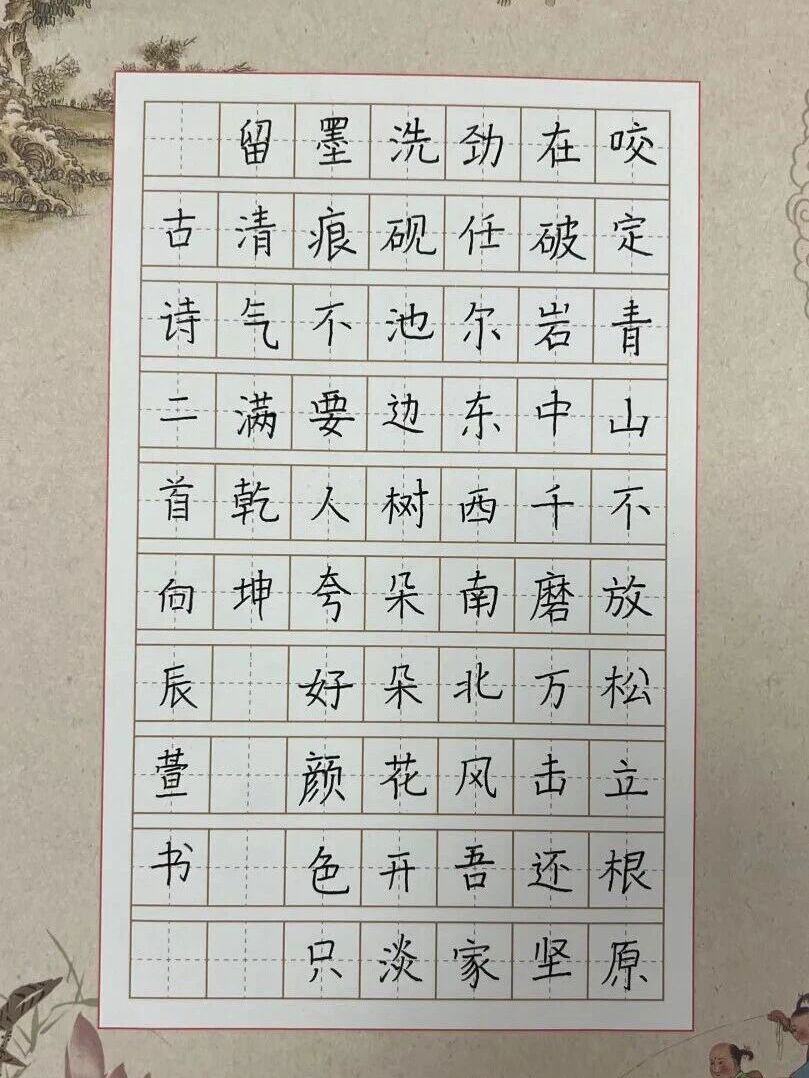 咬定青山不放松立根原
在破岩中千磨万击还坚
劲任尔东西南北风吾家
洗砚池边树朵朵花开淡
墨痕不要人夸好颜色只
留清气满乾坤
古诗二首向辰萱书